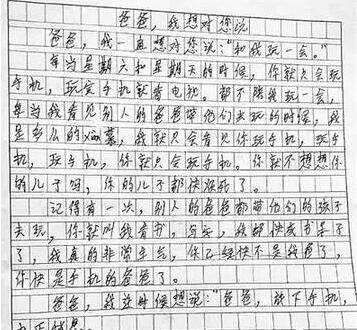 爸爸,我想对您说
爸爸,我一直想对您说:“和我玩一会。”
每当星期六和星期天的时候,你就只会玩
手机,玩完手机就看电视。都不陪我玩一会,
每当我看见别人的爸爸带他们去玩的时候,我
是多么的xiàn慕,我就只会看见你玩手机,玩手
机,玩手机,你就只会玩手机。你就不想想你
的儿子吗,你的儿子都快烦死了。
记得有一次,别人的爸爸都带他们的孩子
去玩,你就叫我看书,写字,我都快成书呆子
了,我真的非常生气,你已经快不是我爸爸,
你快是手机的爸爸了。
爸爸,我这时候想说:“爸爸,放下手机,